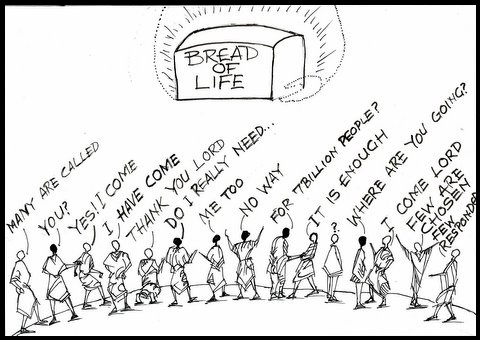 BREAD
OF
LIFE
MANY ARE CALLED
YOU?
YES! I COME
I HAVE COME
THANK YOU LORD
DO I REALLY NEED...
ME TOO
NO WAY
FOR 7 BILLION PEOPLE?
IT IS ENOUGH
?
WHERE ARE YOU GOING?
I COME LORD
FEW ARE
CHOSEN
FEW
RESPONDED